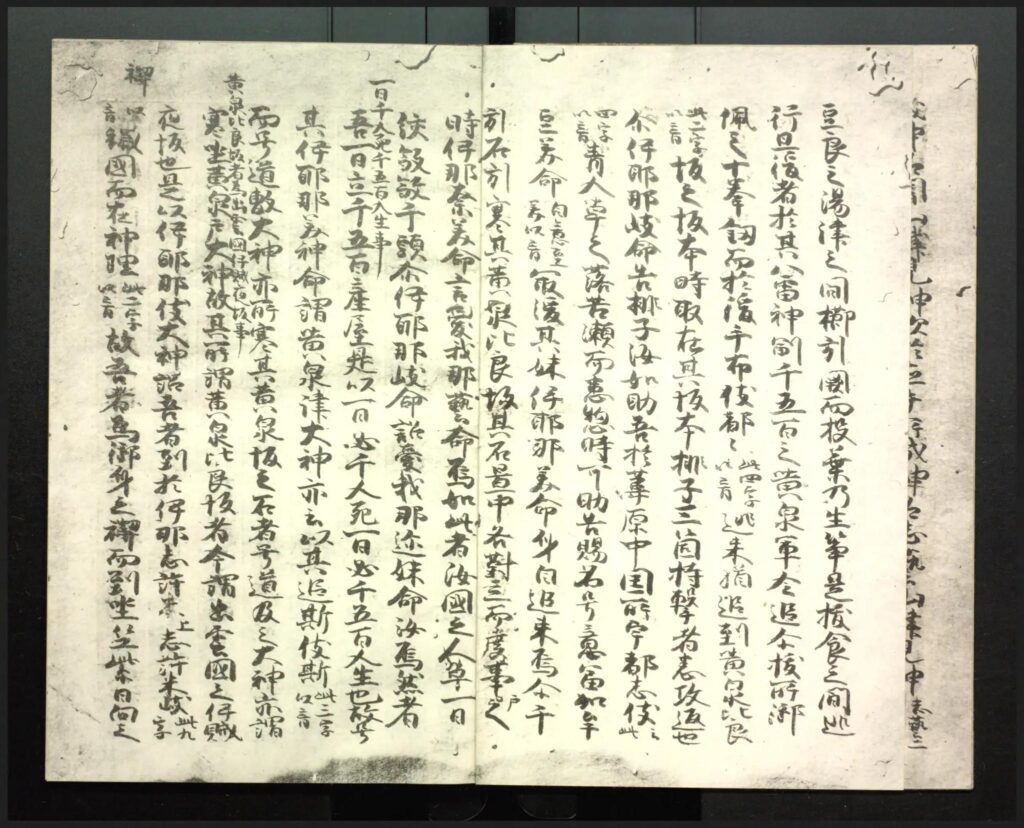 豆良之湯津之間櫛引闕而投棄乃生笋是拔食之間逃
行且後者於其八雷神副千五百之黄泉軍令追尓拔所御
佩之十拳釼而於後手布伎都々此四字以音逃来猶追到黄泉比良
此二字以音坂之坂本時取在其坂本桃子三箇持撃者悉攻返也
尓伊耶那岐命告桃子汝如助吾於葦原中国所有宇都志伎此
四字以音青人草之落苦瀬而患惚時可助告賜名号意富加牟
豆美命自意至美以音最後其妹伊耶那美命身自追来焉尓千
引石引塞其黄泉比良坂其石置中各對立而度事戸之
時伊耶那奈美命言愛我那勢命為如此者汝國之人草一日
絞殺千頭尓伊耶那岐命詔愛我那迩妹命汝為然者
一日千人死千五百人生事
吾一日立千五百産屋是以一日必千人死一日必千五百人生也故号
其伊耶那美神命謂黄泉津大神亦云以其追斯伎斯此三字以音
而号道敷大神亦所塞其黄泉坂之石者号道反之大神亦謂
黄泉比良坂者為出雲國伊賦夜坂事
塞坐黄泉戸大神故其所謂黄泉比良坂者今謂出雲國之伊賦
夜坂也是以伊耶那伎大神詔吾者到於伊那志許上志許米岐此九字
禊
以音穢國而在祁理此二字以音故吾者為御身之禊而到坐竺紫日向之